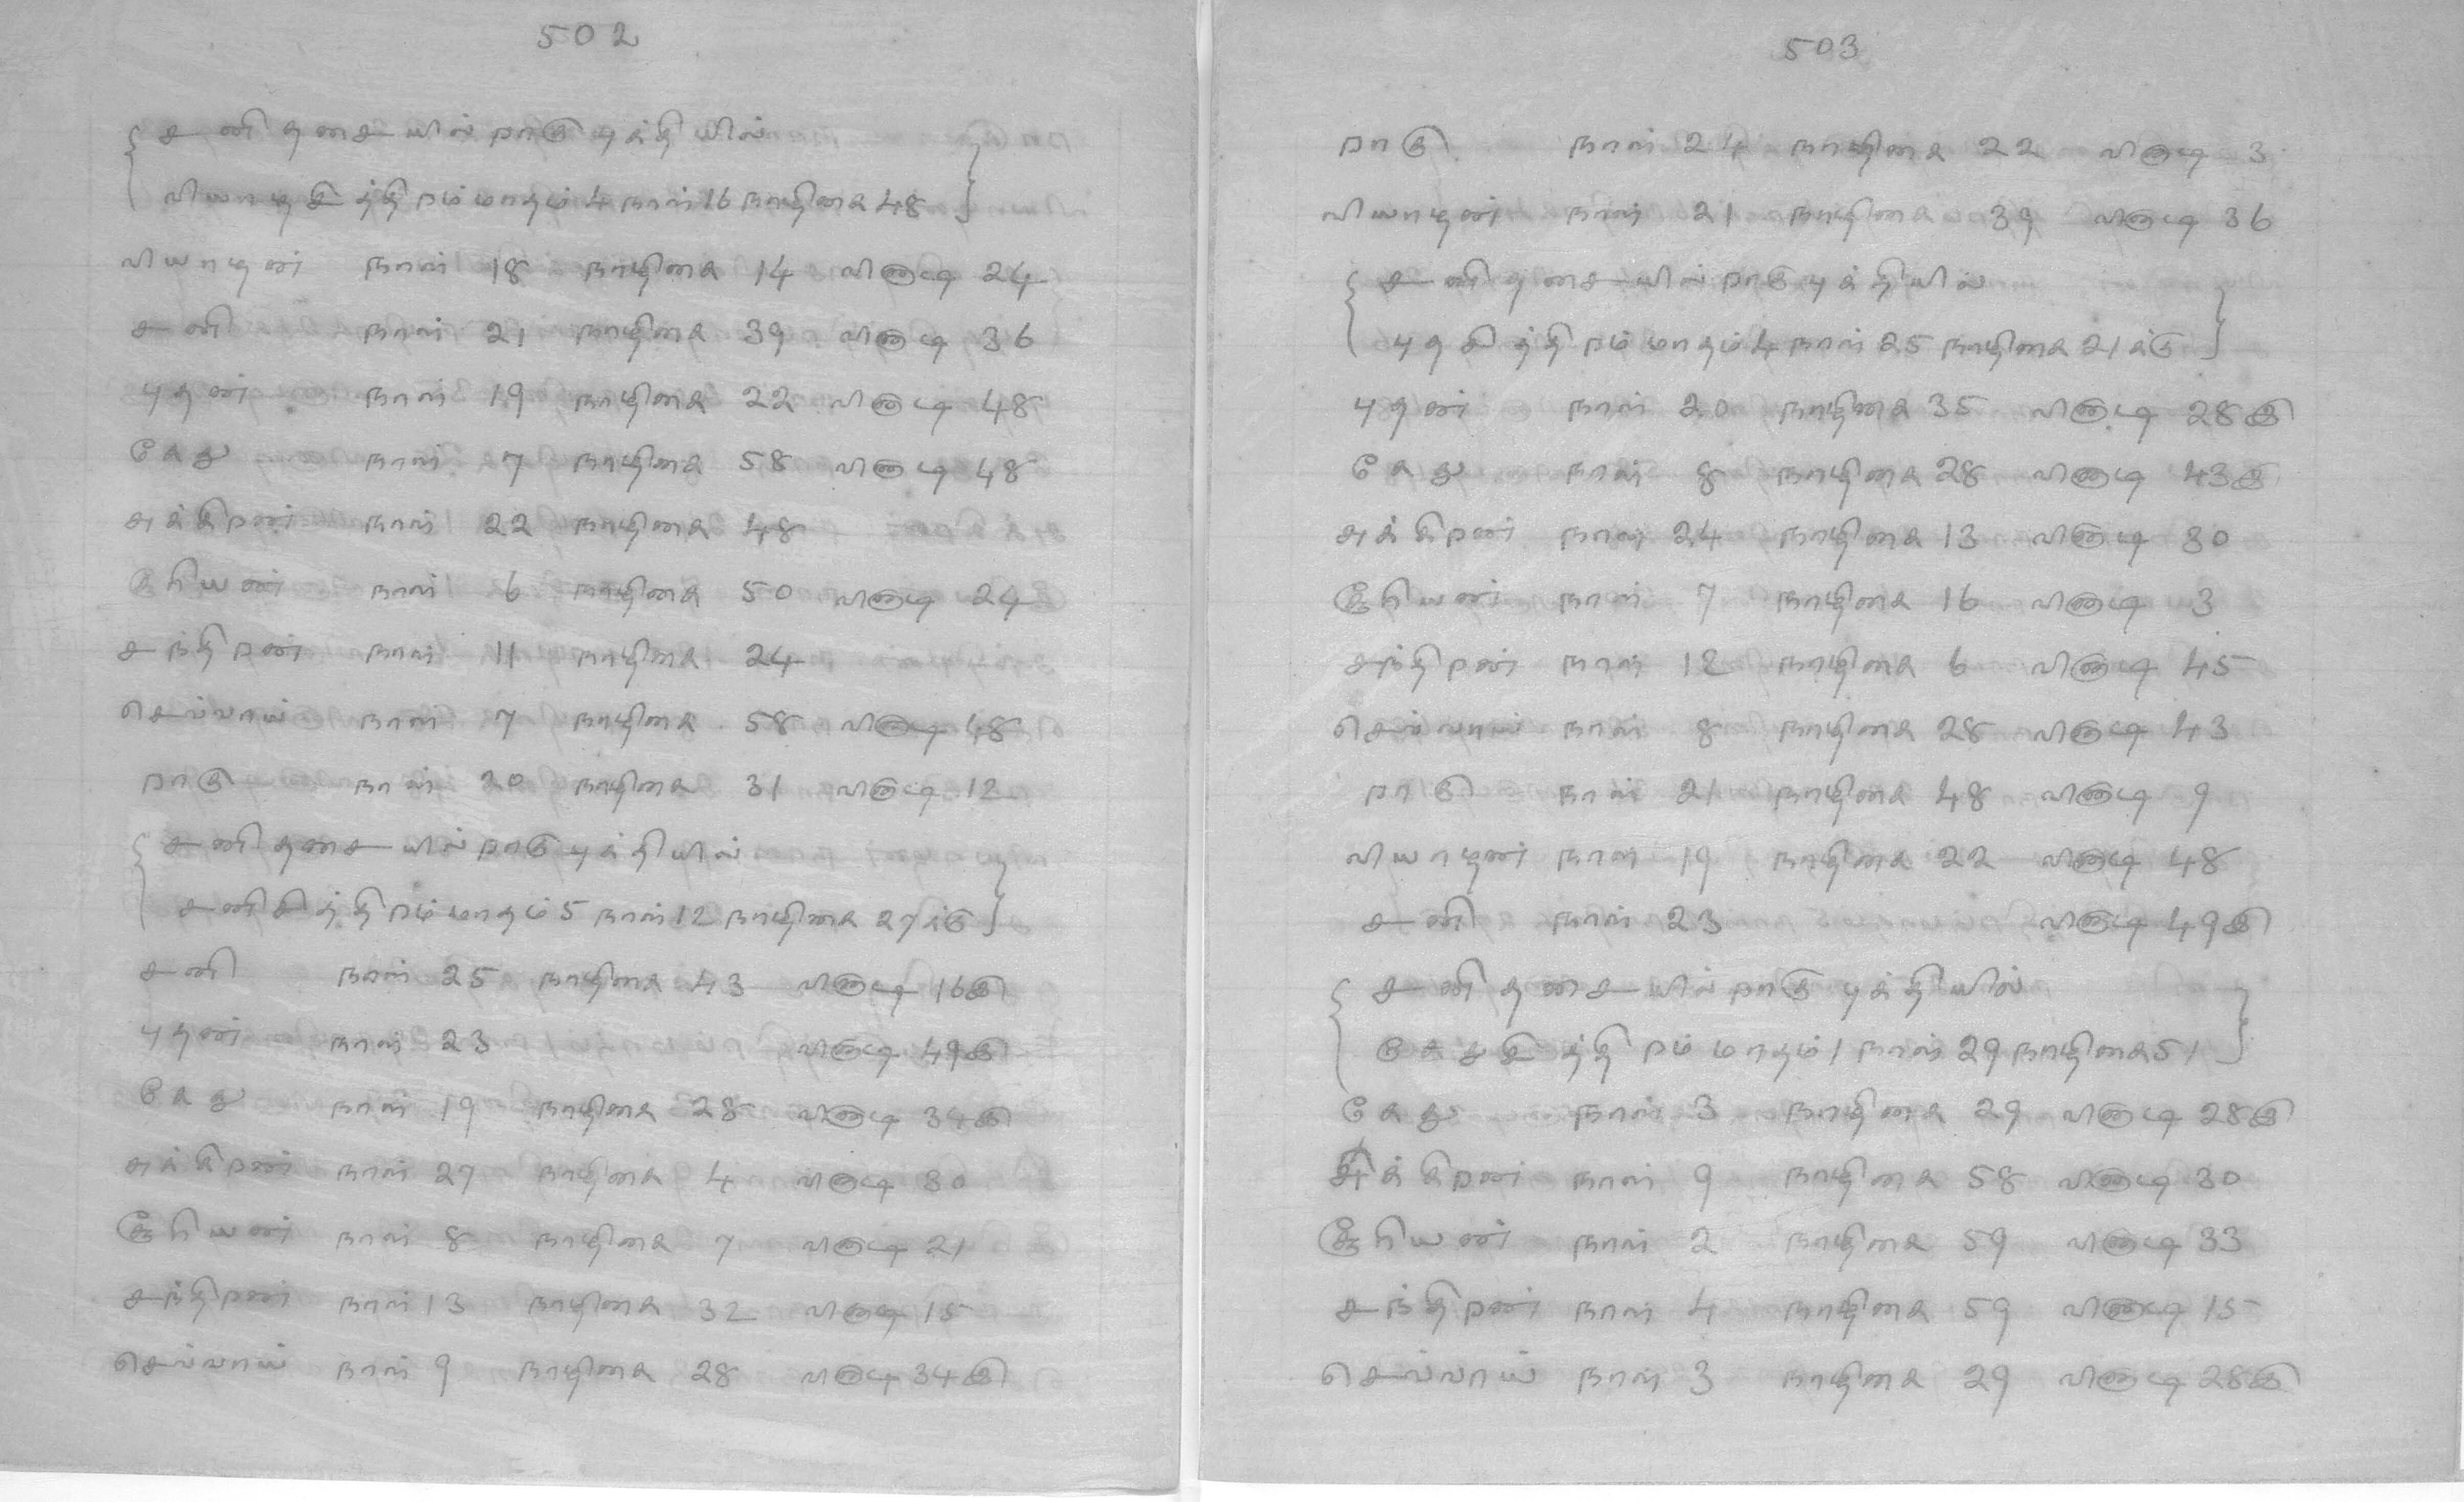 502
சனி தசையில் ராகு புக்தியில்
வியாழ சித்திரம் மாதம் 4 நாள் 16 நாழிகை 48
வியாழன் நாள் 18 நாழிகை 14 வினாடி 24
சனி நாள் 21 நாழிகை 39 வினாடி 36
புதன் நாள் 19 நாழிகை 22 வினாடி 48
கேது நாள் 7 நாழிகை 58 வினாடி 48
சுக்கிரன் நாள் 22 நாழிகை 48
சூரியன் நாள் 6 நாழிகை 50 வினாடி 24
சந்திரன் நாள் 11 நாழிகை 24
செவ்வாய் நாள் 7 நாழிகை 58 வினாடி 48
ராகு நாள் 20 நாழிகை 31 வினாடி 12
சனி தசையில் ராகு புக்தியில்
சனி சித்திரம் மாதம் 5 நாள் 12 நாழிகை 27க்கு
சனி நாள் 25 நாழிகை 43 வினாடி 16இ
புதன் நாள் 23 வினாடி 49இ
கேது நாள் 19 நாழிகை 28 வினாடி 34இ
சுக்கிரன் நாள் 27 நாழிகை 4 வினாடி 30
சூரியன் நாள் 8 நாழிகை 7 வினாடி 21
சந்திரன் நாள் 13 நாழிகை 32 வினாடி 15
செவ்வாய் நாள் 9 நாழிகை 28 வினாடி 34இ
503
ராகு நாள் 24 நாழிகை 22 வினாடி 3
வியாழன் நாள் 21 நாழிகை 39 வினாடி 36
சனி தசையில் ராகு புக்தியில்
புத சித்திரம் மாதம் 4 நாள் 25 நாழிகை 21க்கு
புதன் நாள் 20 நாழிகை 35 வினாடி 28இ
கேது நாள் 8 நாழிகை 28 வினாடி 43இ
சுக்கிரன் நாள் 24 நாழிகை 13 வினாடி 30
சூரியன் நாள் 7 நாழிகை 16 வினாடி 3
சந்திரன் நாள் 12 நாழிகை 6 வினாடி 45
செவ்வாய் நாள் 8 நாழிகை 28 வினாடி 43
ராகு நாள் 21 நாழிகை 48 வினாடி 9
வியாழன் நாள் 19 நாழிகை 22 வினாடி 48
சனி நாள் 23 வினாடி 49இ
சனி தசையில் ராகு புக்தியில்
கேது சித்திரம் மாதம் 1 நாள் 29 நாழிகை 51
கேது நாள் 3 நாழிகை 29 வினாடி 28இ
சுக்கிரன் நாள் 9 நாழிகை 58 வினாடி 30
சூரியன் நாள் 2 நாழிகை 59 வினாடி 33
சந்திரன் நாள் 4 நாழிகை 59 வினாடி 15
செவ்வாய் நாள் 3 நாழிகை 29 வினாடி 28இ